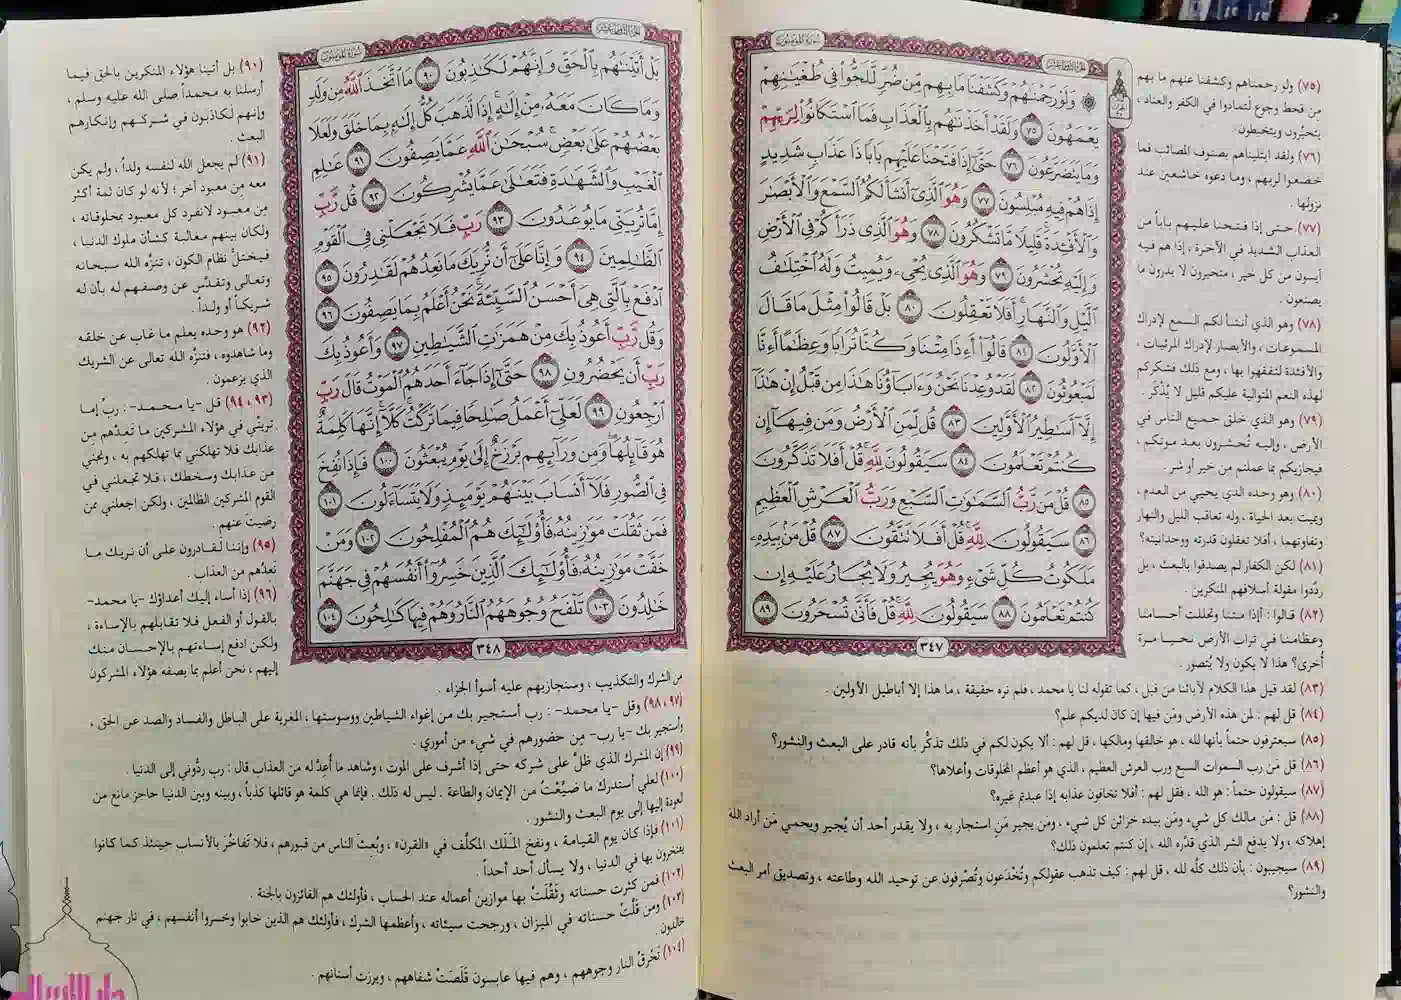 سُورَةُ المُؤْمِنُونَ
الجُزْءُ الثَّامِنَ عَشَرَ
۞ وَلَوْ رَحِمْنَٰهُمْ وَكَشَفْنَا مَا بِهِم مِّن ضُرٍّ لَّلَجُّوا۟ فِى طُغْيَٰنِهِمْ
يَعْمَهُونَ ٧٥ وَلَقَدْ أَخَذْنَٰهُم بِٱلْعَذَابِ فَمَا ٱسْتَكَانُوا۟ لِرَبِّهِمْ
وَمَا يَتَضَرَّعُونَ ٧٦ حَتَّىٰٓ إِذَا فَتَحْنَا عَلَيْهِم بَابًا ذَا عَذَابٍ شَدِيدٍ
إِذَا هُمْ فِيهِ مُبْلِسُونَ ٧٧ وَهُوَ ٱلَّذِىٓ أَنشَأَ لَكُمُ ٱلسَّمْعَ وَٱلْأَبْصَٰرَ
وَٱلْأَفْـِٔدَةَ ۚ قَلِيلًا مَّا تَشْكُرُونَ ٧٨ وَهُوَ ٱلَّذِى ذَرَأَكُمْ فِى ٱلْأَرْضِ
وَإِلَيْهِ تُحْشَرُونَ ٧٩ وَهُوَ ٱلَّذِى يُحْىِۦ وَيُمِيتُ وَلَهُ ٱخْتِلَٰفُ
ٱلَّيْلِ وَٱلنَّهَارِ ۚ أَفَلَا تَعْقِلُونَ ٨٠ بَلْ قَالُوا۟ مِثْلَ مَا قَالَ
ٱلْأَوَّلُونَ ٨١ قَالُوٓا۟ أَءِذَا مِتْنَا وَكُنَّا تُرَابًا وَعِظَٰمًا أَءِنَّا
لَمَبْعُوثُونَ ٨٢ لَقَدْ وُعِدْنَا نَحْنُ وَءَابَآؤُنَا هَٰذَا مِن قَبْلُ إِنْ هَٰذَآ
إِلَّآ أَسَٰطِيرُ ٱلْأَوَّلِينَ ٨٣ قُل لِّمَنِ ٱلْأَرْضُ وَمَن فِيهَآ إِن
كُنتُمْ تَعْلَمُونَ ٨٤ سَيَقُولُونَ لِلَّهِ ۚ قُلْ أَفَلَا تَذَكَّرُونَ
٨٥ قُلْ مَن رَّبُّ ٱلسَّمَٰوَٰتِ ٱلسَّبْعِ وَرَبُّ ٱلْعَرْشِ ٱلْعَظِيمِ
٨٦ سَيَقُولُونَ لِلَّهِ ۚ قُلْ أَفَلَا تَتَّقُونَ ٨٧ قُلْ مَنۢ بِيَدِهِۦ
مَلَكُوتُ كُلِّ شَىْءٍ وَهُوَ يُجِيرُ وَلَا يُجَارُ عَلَيْهِ إِن
كُنتُمْ تَعْلَمُونَ ٨٨ سَيَقُولُونَ لِلَّهِ ۚ قُلْ فَأَنَّىٰ تُسْحَرُونَ ٨٩
٣٤٧
(٧٥) ولو رحمناهم وكشفنا عنهم ما بهم
من قحط وجوع لتمادوا في الكفر والعناد ،
يتحيَّرون ويتخبطون .
(٧٦) ولقد ابتليناهم بصنوف المصائب فما
خضعوا لربهم ، وما دعوه خاشعين عند
نزولها .
(٧٧) حتى إذا فتحنا عليهم باباً من
العذاب الشديد في الآخرة ، إذا هم فيه
آيسون من كل خير ، متحيرون لا يدرون ما
يصنعون .
(٧٨) وهو الذي أنشأ لكم السمع لإدراك
المسموعات ، والأبصار لإدراك المرئيات ،
والأفئدة لتفقهوا بها ، ومع ذلك فشكركم
لهذه النعم المتوالية عليكم قليل لا يُذْكَر .
(٧٩) وهو الذي خلق جميع الناس في
الأرض ، وإليه تُحشرون بعد موتكم ،
فيجازيكم بما عملتم من خير أو شر .
(٨٠) وهو وحده الذي يحيي من العدم ،
ويميت بعد الحياة ، وله تعاقب الليل والنهار
وتفاوتهما ، أفلا تعقلون قدرته ووحدانيته؟
(٨١) لكن الكفار لم يصدقوا بالبعث ، بل
ردَّدوا مقولة أسلافهم المنكرين .
(٨٢) قالوا : أإذا متنا وتحللت أجسامنا
وعظامنا في تراب الأرض نحيا مرة
أخرى؟ هذا لا يكون ولا يُتصور .
(٨٣) لقد قيل هذا الكلام لآبائنا من قبل ، كما تقوله لنا يا محمد ، فلم نره حقيقة ، ما هذا إلا أباطيل الأولين .
(٨٤) قل لهم : لمن هذه الأرض ومَن فيها إن كان لديكم علم؟
(٨٥) سيعترفون حتماً بأنها لله ، هو خالقها ومالكها ، قل لهم : ألا يكون لكم في ذلك تذكُّر بأنه قادر على البعث والنشور؟
(٨٦) قل مَن رب السموات السبع ورب العرش العظيم ، الذي هو أعظم المخلوقات وأعلاها؟
(٨٧) سيقولون حتماً : هو الله ، فقل لهم : أفلا تخافون عذابه إذا عبدتم غيره؟
(٨٨) قل : مَن مالك كل شيء ، ومَن بيده خزائن كل شيء ، ومَن يجير مَن استجار به ، ولا يقدر أحد أن يُجير ويحمي مَن أراد الله
إهلاكه ، ولا يدفع الشر الذي قدَّره الله ، إن كنتم تعلمون ذلك؟
(٨٩) سيجيبون : بأن ذلك كلَّه لله ، قل لهم : كيف تذهب عقولكم وتُخْدَعون وتُصْرفون عن توحيد الله وطاعته ، وتصديق أمر البعث
والنشور؟
الجُزْءُ الثَّامِنَ عَشَرَ
سُورَةُ المُؤْمِنُونَ
بَلْ أَتَيْنَٰهُم بِٱلْحَقِّ وَإِنَّهُمْ لَكَٰذِبُونَ ٩٠ مَا ٱتَّخَذَ ٱللَّهُ مِن وَلَدٍ
وَمَا كَانَ مَعَهُۥ مِنْ إِلَٰهٍ ۚ إِذًا لَّذَهَبَ كُلُّ إِلَٰهٍۭ بِمَا خَلَقَ وَلَعَلَا
بَعْضُهُمْ عَلَىٰ بَعْضٍ ۚ سُبْحَٰنَ ٱللَّهِ عَمَّا يَصِفُونَ ٩١ عَٰلِمِ
ٱلْغَيْبِ وَٱلشَّهَٰدَةِ فَتَعَٰلَىٰ عَمَّا يُشْرِكُونَ ٩٢ قُل رَّبِّ
إِمَّا تُرِيَنِّى مَا يُوعَدُونَ ٩٣ رَبِّ فَلَا تَجْعَلْنِى فِى ٱلْقَوْمِ
ٱلظَّٰلِمِينَ ٩٤ وَإِنَّا عَلَىٰٓ أَن نُّرِيَكَ مَا نَعِدُهُمْ لَقَٰدِرُونَ ٩٥
ٱدْفَعْ بِٱلَّتِى هِىَ أَحْسَنُ ٱلسَّيِّئَةَ ۚ نَحْنُ أَعْلَمُ بِمَا يَصِفُونَ ٩٦
وَقُل رَّبِّ أَعُوذُ بِكَ مِنْ هَمَزَٰتِ ٱلشَّيَٰطِينِ ٩٧ وَأَعُوذُ بِكَ
رَبِّ أَن يَحْضُرُونِ ٩٨ حَتَّىٰٓ إِذَا جَآءَ أَحَدَهُمُ ٱلْمَوْتُ قَالَ رَبِّ
ٱرْجِعُونِ ٩٩ لَعَلِّىٓ أَعْمَلُ صَٰلِحًا فِيمَا تَرَكْتُ ۚ كَلَّآ ۚ إِنَّهَا كَلِمَةٌ
هُوَ قَآئِلُهَا ۖ وَمِن وَرَآئِهِم بَرْزَخٌ إِلَىٰ يَوْمِ يُبْعَثُونَ ١٠٠ فَإِذَا نُفِخَ
فِى ٱلصُّورِ فَلَآ أَنسَابَ بَيْنَهُمْ يَوْمَئِذٍ وَلَا يَتَسَآءَلُونَ ١٠١
فَمَن ثَقُلَتْ مَوَٰزِينُهُۥ فَأُو۟لَٰٓئِكَ هُمُ ٱلْمُفْلِحُونَ ١٠٢ وَمَنْ
خَفَّتْ مَوَٰزِينُهُۥ فَأُو۟لَٰٓئِكَ ٱلَّذِينَ خَسِرُوٓا۟ أَنفُسَهُمْ فِى جَهَنَّمَ
خَٰلِدُونَ ١٠٣ تَلْفَحُ وُجُوهَهُمُ ٱلنَّارُ وَهُمْ فِيهَا كَٰلِحُونَ ١٠٤
٣٤٨
(٩٠) بل أتينا هؤلاء المنكرين بالحق فيما
أرسلنا به محمداً صلى الله عليه وسلم ،
وإنهم لكاذبون في شركهم وإنكارهم
البعث .
(٩١) لم يجعل الله لنفسه ولداً ، ولم يكن
معه من معبود آخر؛ لأنه لو كان ثمة أكثر
مِن معبود لانفرد كل معبود بمخلوقاته ،
ولكان بينهم مغالبة كشأن ملوك الدنيا ،
فيختلُّ نظام الكون ، تنزَّه الله سبحانه
وتعالى وتقدَّس عن وصفهم له بأن له
شريكاً أو ولداً .
(٩٢) هو وحده يعلم ما غاب عن خلقه
وما شاهدوه ، فتنزَّه الله تعالى عن الشريك
الذي يزعمون .
(٩٣، ٩٤) قل -يا محمد- : ربِّ إما
ترينِّي في هؤلاء المشركين ما تَعِدُهم مِن
عذابك فلا تهلكني بما تهلكهم به ، ونجني
من عذابك وسخطك ، فلا تجعلني في
القوم المشركين الظالمين ، ولكن اجعلني ممن
رضيتَ عنهم .
(٩٥) وإننا لقادرون على أن نريك ما
نَعدُهم من العذاب .
(٩٦) إذا أساء إليك أعداؤك -يا محمد-
بالقول أو الفعل فلا تقابلهم بالإساءة ،
ولكن ادفع إساءتهم بالإحسان منك
إليهم ، نحن أعلم بما يصفه هؤلاء المشركون
من الشرك والتكذيب ، وسنجازيهم عليه أسوأ الجزاء .
(٩٧، ٩٨) وقل -يا محمد- : رب أستجير بك من إغواء الشياطين ووسوستها ، المغرية على الباطل والفساد والصد عن الحق ،
وأستجير بك -يا رب- مِن حضورهم في شيء من أموري .
(٩٩) إن المشرك الذي ظلَّ على شركه حتى إذا أشرف على الموت ، وشاهد ما أُعِدَّ له من العذاب قال : رب ردُّوني إلى الدنيا .
(١٠٠) لعلي أستدرك ما ضيَّعْتُ من الإيمان والطاعة . ليس له ذلك . فإنما هي كلمة هو قائلها كذباً ، وبينه وبين الدنيا حاجز مانع من
العودة إليها إلى يوم البعث والنشور .
(١٠١) فإذا كان يوم القيامة ، ونفخ المَلَك المكلَّف في «القرن» ، وبُعِثَ الناس من قبورهم ، فلا تَفاخُرَ بالأنساب حينئذ كما كانوا
يفتخرون بها في الدنيا ، ولا يسأل أحد أحداً .
(١٠٢) فمن كثرت حسناته وثَقُلَتْ بها موازين أعماله عند الحساب ، فأولئك هم الفائزون بالجنة .
(١٠٣) ومن قَلَّتْ حسناته في الميزان ، ورجحت سيئاته ، وأعظمها الشرك ، فأولئك هم الذين خابوا وخسروا أنفسهم ، في نار جهنم
خالدون .
(١٠٤) تَحْرقُ النار وجوههم ، وهم فيها عابسون قَلَصَتْ شفاههم ، وبرزت أسنانهم .